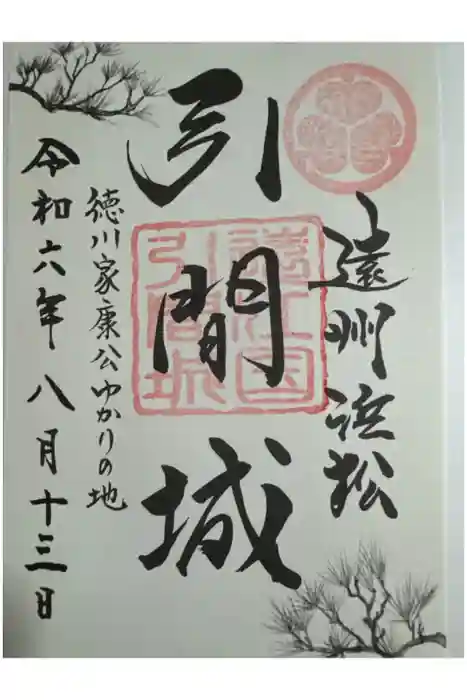 遠州浜松
引間城
遠江国
引間城
徳川家康公ゆかりの地
令和六年八月十三日